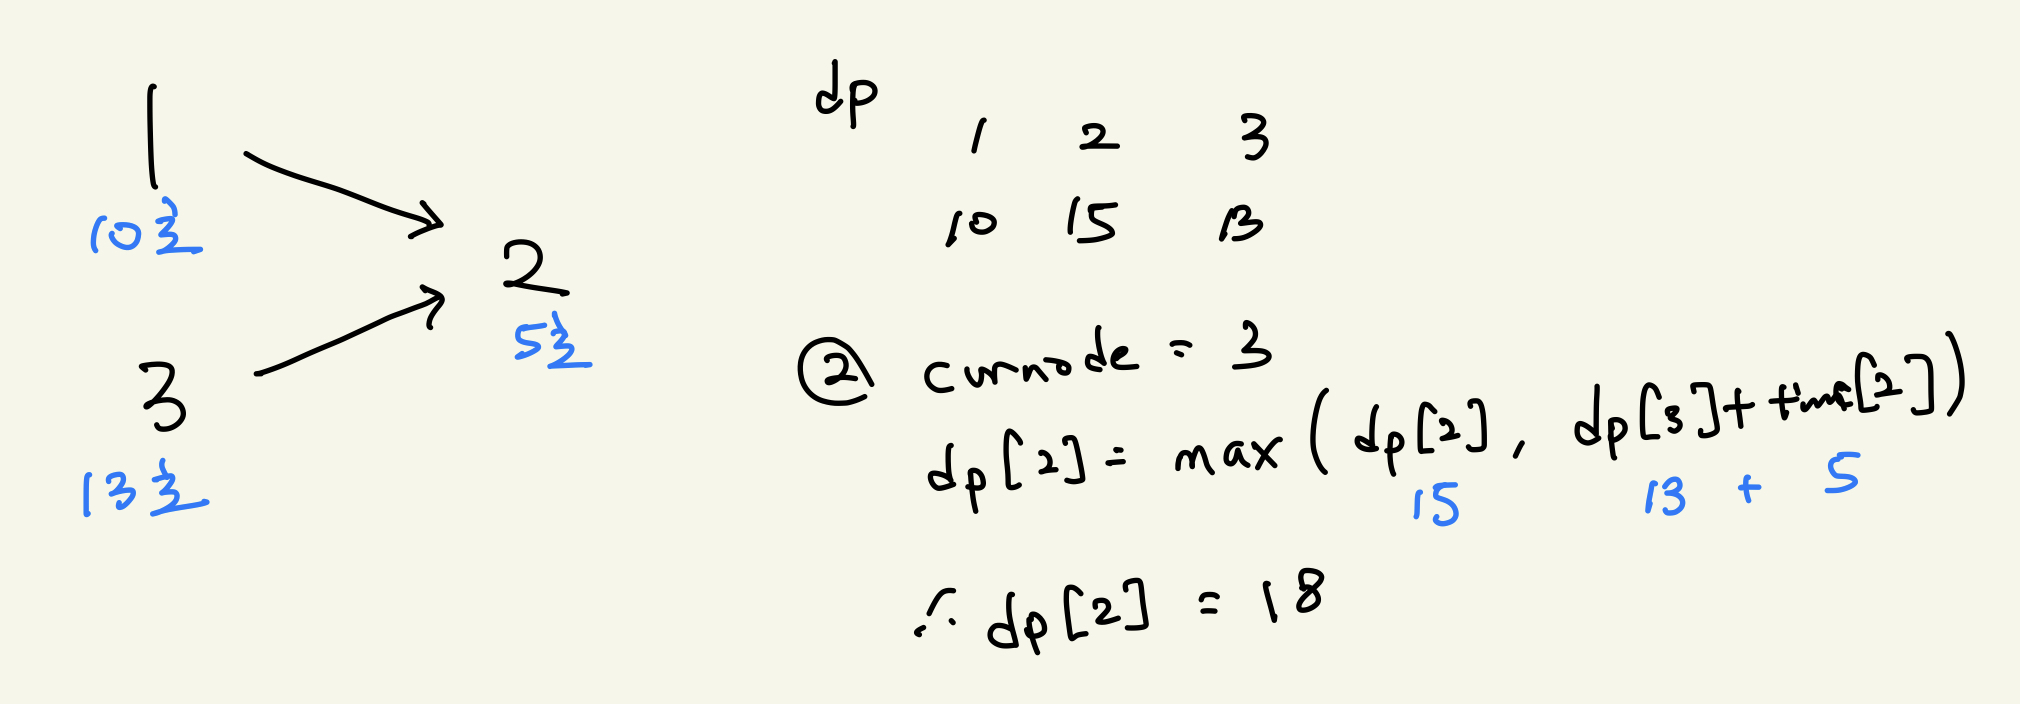 1
10초
3
13초
2
5초
dp
1 2 3
10 15 13
② curnode = 3
dp[2] = max(dp[2], dp[3] + time[2])
15 13 + 5
∴ dp[2] = 18